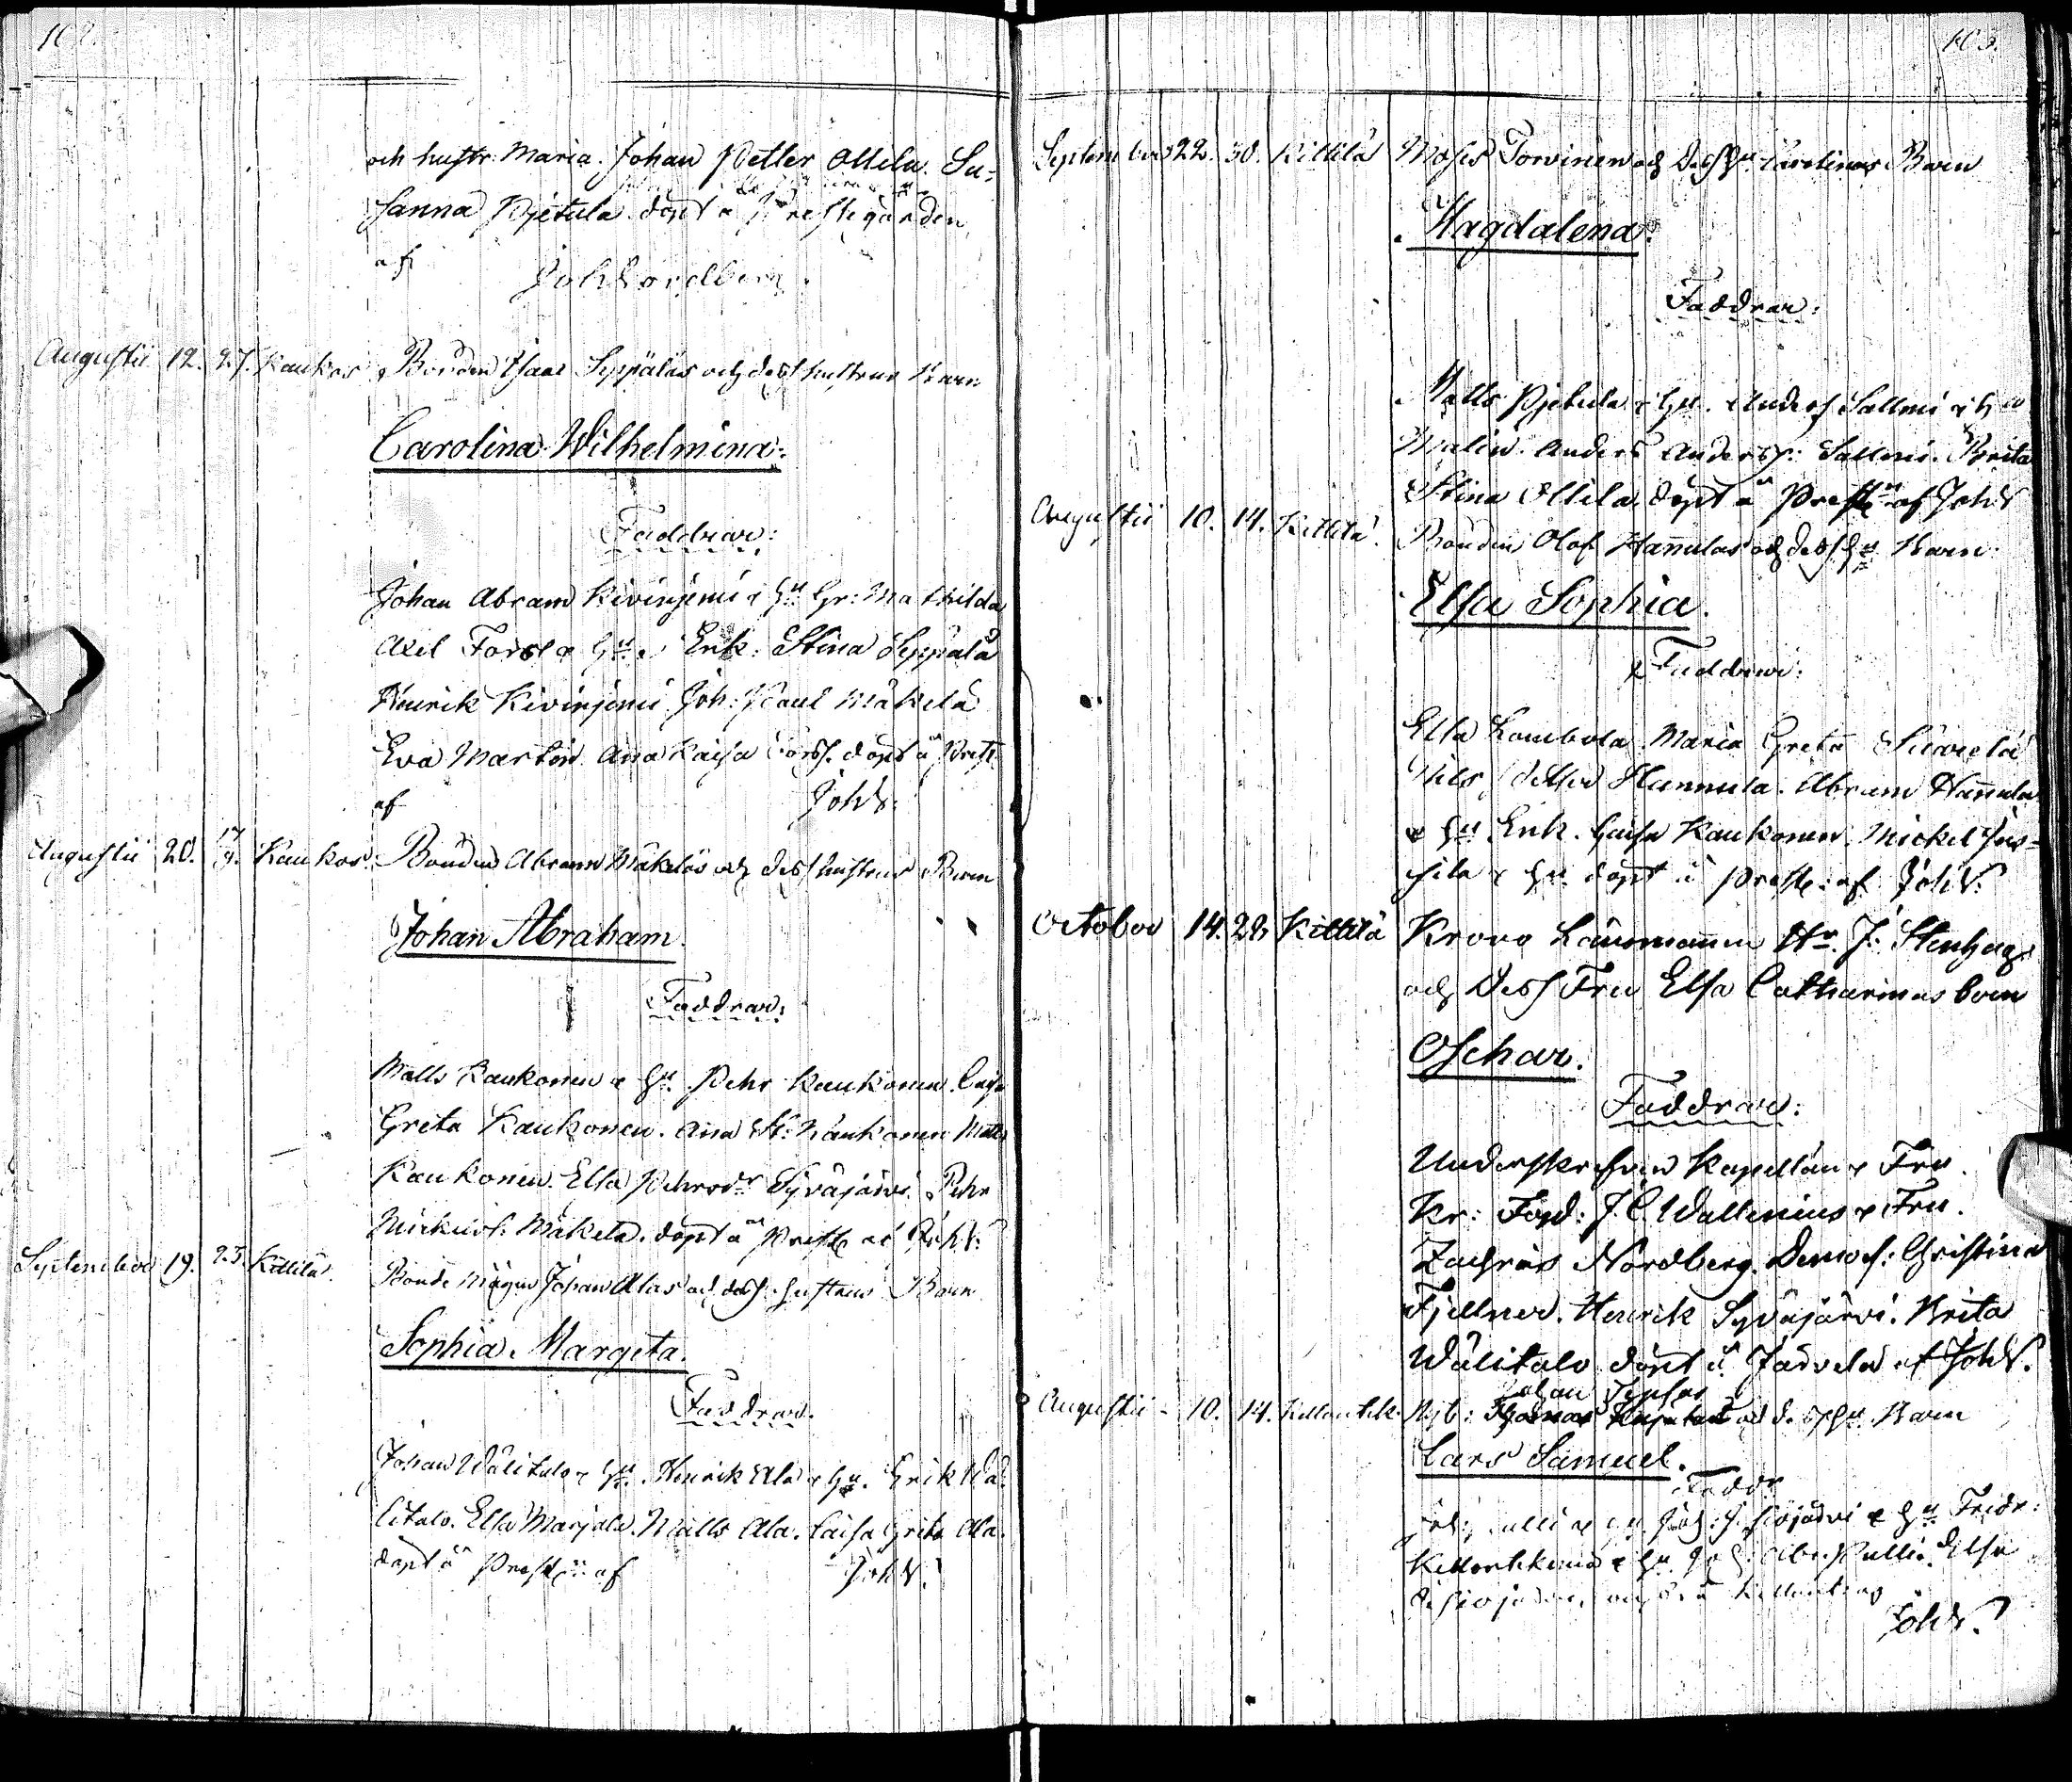 102.
och hustr: Maria. Johan Petter Ollila. Su=
sanna Pjetula döpt å Prestegården
af
Joh Nordberg.
Augustii 12. 27. Kaukos Bonden Isaac Seppäläs och dess hustrus Barn
Carolina Wilhelmina.
Faddrar:
Johan Abram Kivinjemi & hu Gr: Mathilda
Axel Forss & hu Enk: Stina Seppälä
Henrik Kivinjemi Joh: Paul Mäkelä
Eva Martin Ana Kaisa Forss. döpt å Prest
af JohN.
Augustii 20. Kaukos. Bonden Abram Mäkeläs och dess hustrus Barn
Johan Abraham.
Faddrar:
Matts Kaukonen & hu. Pehr Kaukonen. Caisa
Greta Kaukonen. Ana St: Kaukonen Matts
Kaukonen. Elsa Pehrsdr Syväjärvi. Pehr
Mickelss: Mäkelä. döpt å Prestg af JohN.
September 19. 23. Kittilä. Bonde mågen Johan Alas och dess hustrus Barn
Sophia Margeta.
Faddrar.
Johan Wälitalo & hu. Henrik Ala & hu. Erik Wä=
litalo. Elsa Marjala. Matts Ala. Caisa Greta Ala.
döpt å Prestg: af JohN.
103.
September 22. 30. Kittilä Moses Torvinen och Dess hu Carolinas Barn
Magdalena.
Faddrar:
Matts Pjetula & hu. Anders Salmi & hu
Malin. Anders Anderss: Salmi. Brita
Stina Ollila. döpt å Prestg af JohN
Augustii 10. 14. Kittilä. Bonden Olof Hannulas och dess hu Barn
Elsa Sophia.
Faddrar:
Ella Lombola Maria Greta
Nils Petter Hannula. Abram Hannula
& hu Enk. Caisa Kaukonen. Mickel Jus=
sila & hu döpt å Prestg: af JohN.
October 14. 28. Kittilä Krono Länsmannen Hr. J: Stenhags
och Dess Fru Elsa Catharinas barn
Oschar.
Faddrar:
Underskrefven Kapellan & Fru.
Kr: Fogd: J. C. Wallenius & Fru.
Zachris Nordberg. Demois: Christina
Fjellner. Henrik Syväjärvi. Brita
Wälitalo döpt å Järvelä af JohN.
Johan
Augustii 10. 14. Nyb: och dess hu Barn
Lars Samuel.
Faddr
& hu Fridr:
& hu Elsa
JohN.